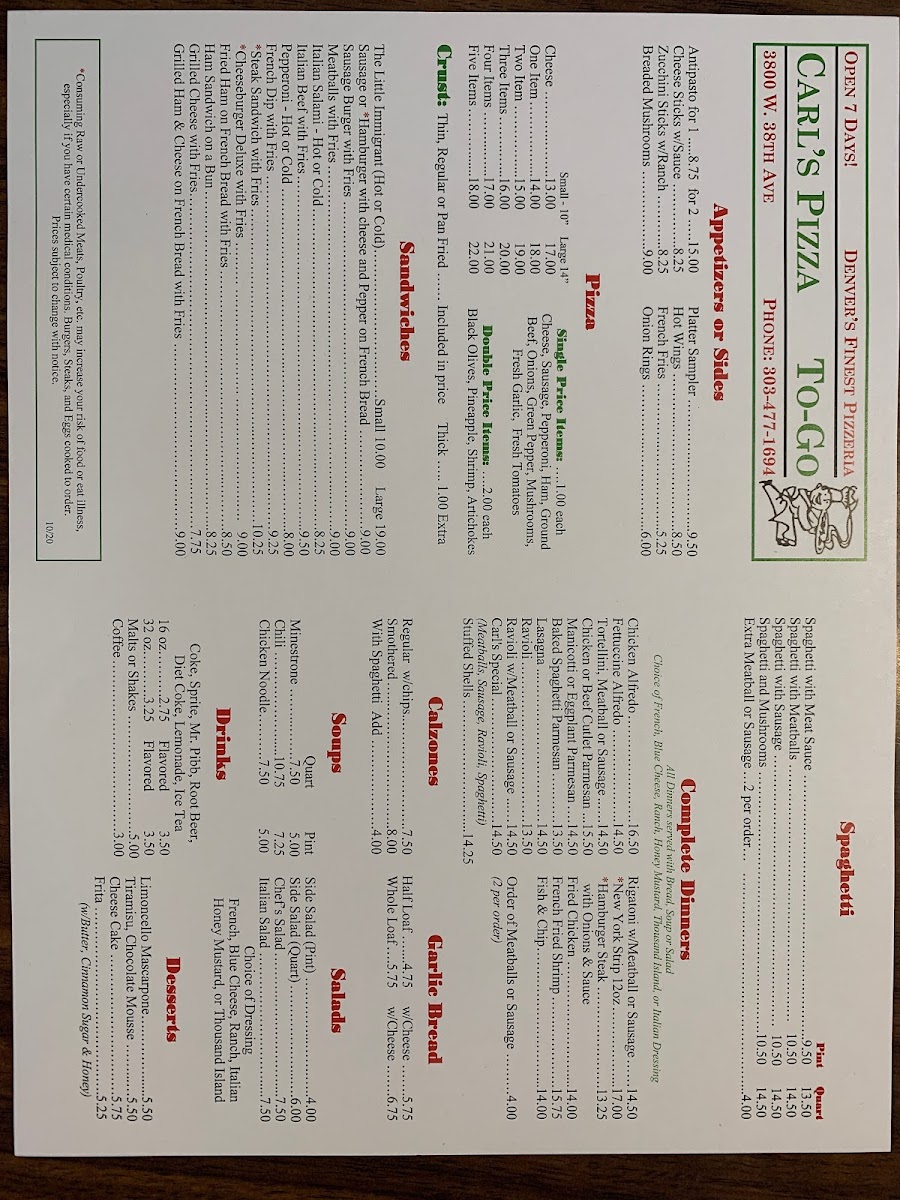 OPEN 7 DAYS! DENVER'S FINEST PIZZERIA
CARL'S PIZZA TO-GO
3800 W. 38TH AVE PHONE: 303-477-1694
Appetizers or Sides
Antipasto for 1 ....8.75 for 2 .....15.00
Cheese Sticks w/Sauce ..............8.25
Zucchini Sticks w/Ranch ............8.25
Breaded Mushrooms .................9.00
Platter Sampler ..........................9.50
Hot Wings ................................8.50
French Fries ..............................5.25
Onion Rings ..............................6.00
Pizza
Small - 10" Large 14"
Cheese ...................13.00 17.00
One Item.................14.00 18.00
Two Item ................15.00 19.00
Three Items .............16.00 20.00
Four Items ..............17.00 21.00
Five Items ...............18.00 22.00
Single Price Items: ....1.00 each
Cheese, Sausage, Pepperoni, Ham, Ground
Beef, Onions, Green Pepper, Mushrooms,
Fresh Garlic, Fresh Tomatoes
Double Price Items: ....2.00 each
Black Olives, Pineapple, Shrimp, Artichokes
Crust: Thin, Regular or Pan Fried ...... Included in price Thick ......1.00 Extra
Sandwiches
The Little Immigrant (Hot or Cold)............ Small 10.00 Large 19.00
Sausage or *Hamburger with cheese and Pepper on French Bread ..............9.00
Sausage Burger with Fries ..............................................................9.00
Meatballs with Fries ......................................................................9.00
Italian Salami - Hot or Cold ............................................................8.25
Italian Beef with Fries ....................................................................9.50
Pepperoni - Hot or Cold .................................................................8.00
French Dip with Fries ....................................................................9.25
*Steak Sandwich with Fries ............................................................10.25
*Cheeseburger Deluxe with Fries .....................................................9.00
Fried Ham on French Bread with Fries ..............................................8.50
Ham Sandwich on a Bun ................................................................8.25
Grilled Cheese with Fries................................................................7.75
Grilled Ham & Cheese on French Bread with Fries ..............................9.00
*Consuming Raw or Undercooked Meats, Poultry, etc. may increase your risk of food or eat illness,
especially if you have certain medical conditions. Burgers, Steaks, and Eggs cooked to order.
Prices subject to change with notice.
10/20
Spaghetti
Pint Quart
Spaghetti with Meat Sauce ..............................................9.50 13.50
Spaghetti with Meatballs ................................................10.50 14.50
Spaghetti with Sausage ..................................................10.50 14.50
Spaghetti and Mushrooms ..............................................10.50 14.50
Extra Meatball or Sausage ..2 per order... ......................................4.00
Complete Dinners
All Dinners served with Bread, Soup or Salad
Choice of French, Blue Cheese, Ranch, Honey Mustard, Thousand Island, or Italian Dressing
Chicken Alfredo.........................16.50
Fettuccine Alfredo .....................14.50
Tortellini, Meatball or Sausage ....14.50
Chicken or Beef Cutlet Parmesan....15.50
Manicotti or Eggplant Parmesan ....14.50
Baked Spaghetti Parmesan............13.50
Lasagna ...................................14.50
Ravioli .....................................13.50
Ravioli w/Meatball or Sausage ......14.50
Carl's Special ............................14.50
(Meatballs, Sausage, Ravioli, Spaghetti)
Stuffed Shells............................14.25
Rigatoni w/Meatball or Sausage ......14.50
*New York Strip 12oz..................17.00
*Hamburger Steak ......................13.25
with Onions & Sauce
Fried Chicken ...........................14.00
French Fried Shrimp....................15.75
Fish & Chip..............................14.00
Order of Meatballs or Sausage ......4.00
(2 per order)
Calzones
Regular w/chips.........................7.50
Smothered................................8.00
With Spaghetti Add ....................4.00
Garlic Bread
Half Loaf ......4.75 w/Cheese ......5.75
Whole Loaf.....5.75 w/Cheese ......6.75
Soups
Quart Pint
Minestrone ..............7.50 5.00
Chili .....................10.75 7.25
Chicken Noodle.........7.50 5.00
Salads
Side Salad (Pint) ........................4.00
Side Salad (Quart) ......................6.00
Chef's Salad ..............................7.50
Italian Salad ..............................7.50
Choice of Dressing
French, Blue Cheese, Ranch, Italian
Honey Mustard, or Thousand Island
Drinks
Coke, Sprite, Mr. Pibb, Root Beer,
Diet Coke, Lemonade, Ice Tea
16 oz..........2.75 Flavored 3.50
32 oz..........3.25 Flavored 3.50
Malts or Shakes .........................5.00
Coffee .....................................3.00
Desserts
Limoncello Mascarpone................5.50
Tiramisu, Chocolate Mousse ..........5.50
Cheese Cake ..............................5.75
Frita ........................................5.25
(w/Butter, Cinnamon Sugar & Honey)